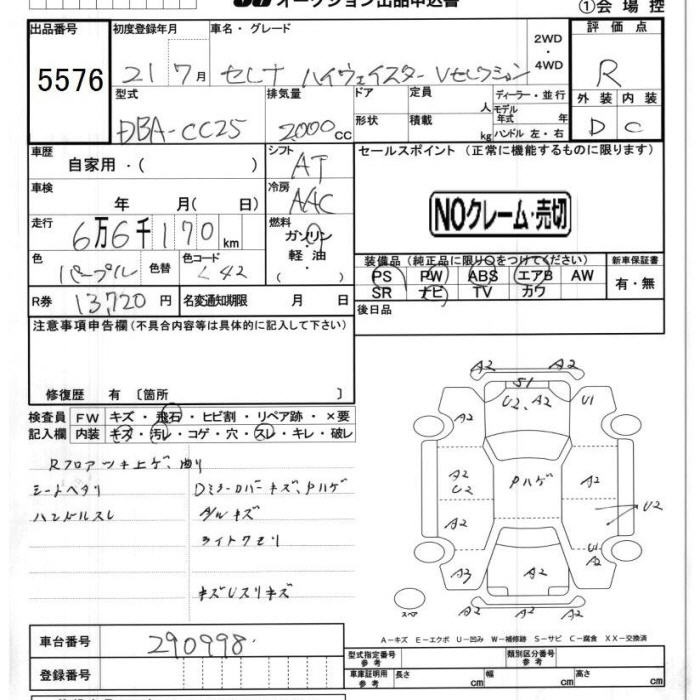 オークション出品申込書
①会場控
出品番号 初度登録年月 車名・グレード 2WD・4WD 評価点
5576 21 7月 セレナ ハイウェイスター Vセレクション R
型式 排気量 ドア 定員 人 ディーラー・並行 外装 内装
DBA-CC25 2000cc 形状 積載 kg モデル年式 年 ハンドル 左・右 D C
車歴 自家用・( ) シフト AT セールスポイント (正常に機能するものに限ります)
車検 年 月( 日) 冷房 AAC
NOクレーム・売切
走行 6万6千170km 燃料 ガソリン 軽油 ( )
色 パープル 色替 色コード L42
装備品(純正品に限り○をつけてください) 新車保証書
PS PW ABS エアB AW 有・無
SR ナビ TV カワ
R券 13,720円 名変通知期限 月 日 後日品
注意事項申告欄(不具合内容等は具体的に記入して下さい)
修復歴 有 〔箇所 〕
検査員 FW キズ・飛石・ヒビ割・リペア跡・×要
記入欄 内装 キズ・汚レ・コゲ・穴・スレ・キレ・破レ
Rフロアツキ上ゲ、曲り
シートヘタリ Dミラーカバーキズ、Pハゲ
ハンドルスレ AWキズ
ライトクモリ
キズUスリキズ
A2 A2
S1
A2 U2、A2 U1
A2 U2 Pハゲ A2
A2 U2
A3 A2 U1 A2
A2 A2 A2
スペア
A−キズ E−エクボ U−凹み W−補修跡 S−サビ C−腐食 XX−交換済
車台番号 290998
登録番号
型式指定番号 参考 類別区分番号 参考
車庫証明用 参考 長さ cm 幅 cm 高さ cm